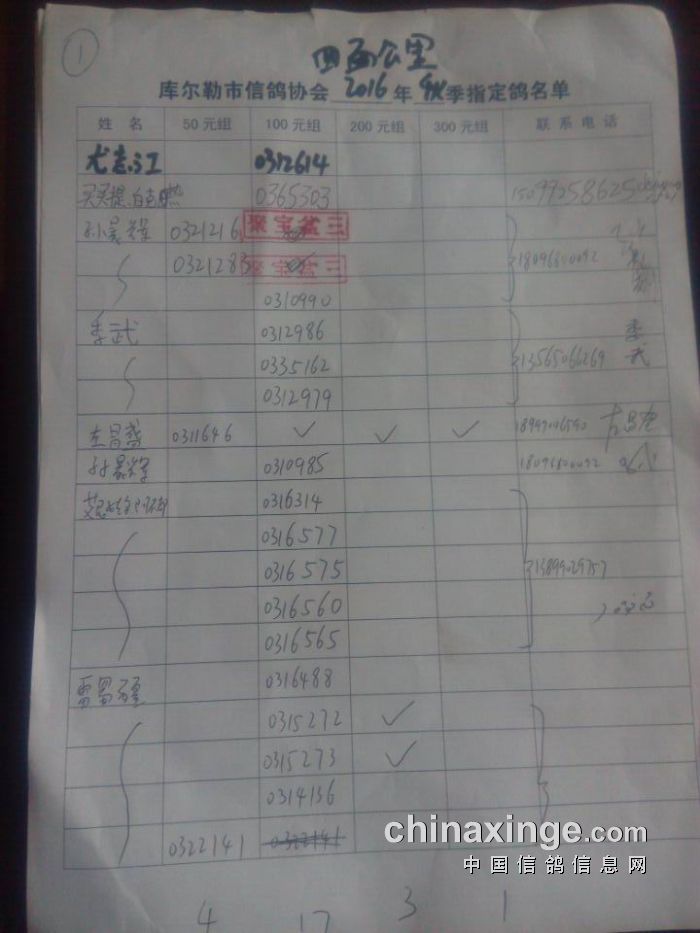 1
四百公里
库尔勒市信鸽协会 2016 年 秋季指定鸽名单
姓 名 50元组 100元组 200元组 300元组 联系电话
尤志江 0312614
买买提 0365303 15099258625
孙景辉 0321216 聚宝盆三
0321283 聚宝盆三 18096800092
0310990
李武 0312986 李
0335162 13565066269 武
0312979
0311646 ✓ ✓ ✓
孙景辉 0310985 18096800092
0316314
0316577
0316575 13899029757
0316560
0316565
0316488
0315272 ✓
0315273 ✓
0314136
0322141 0322141
4 17 3 1
chinaxinge.com
中国信鸽信息网